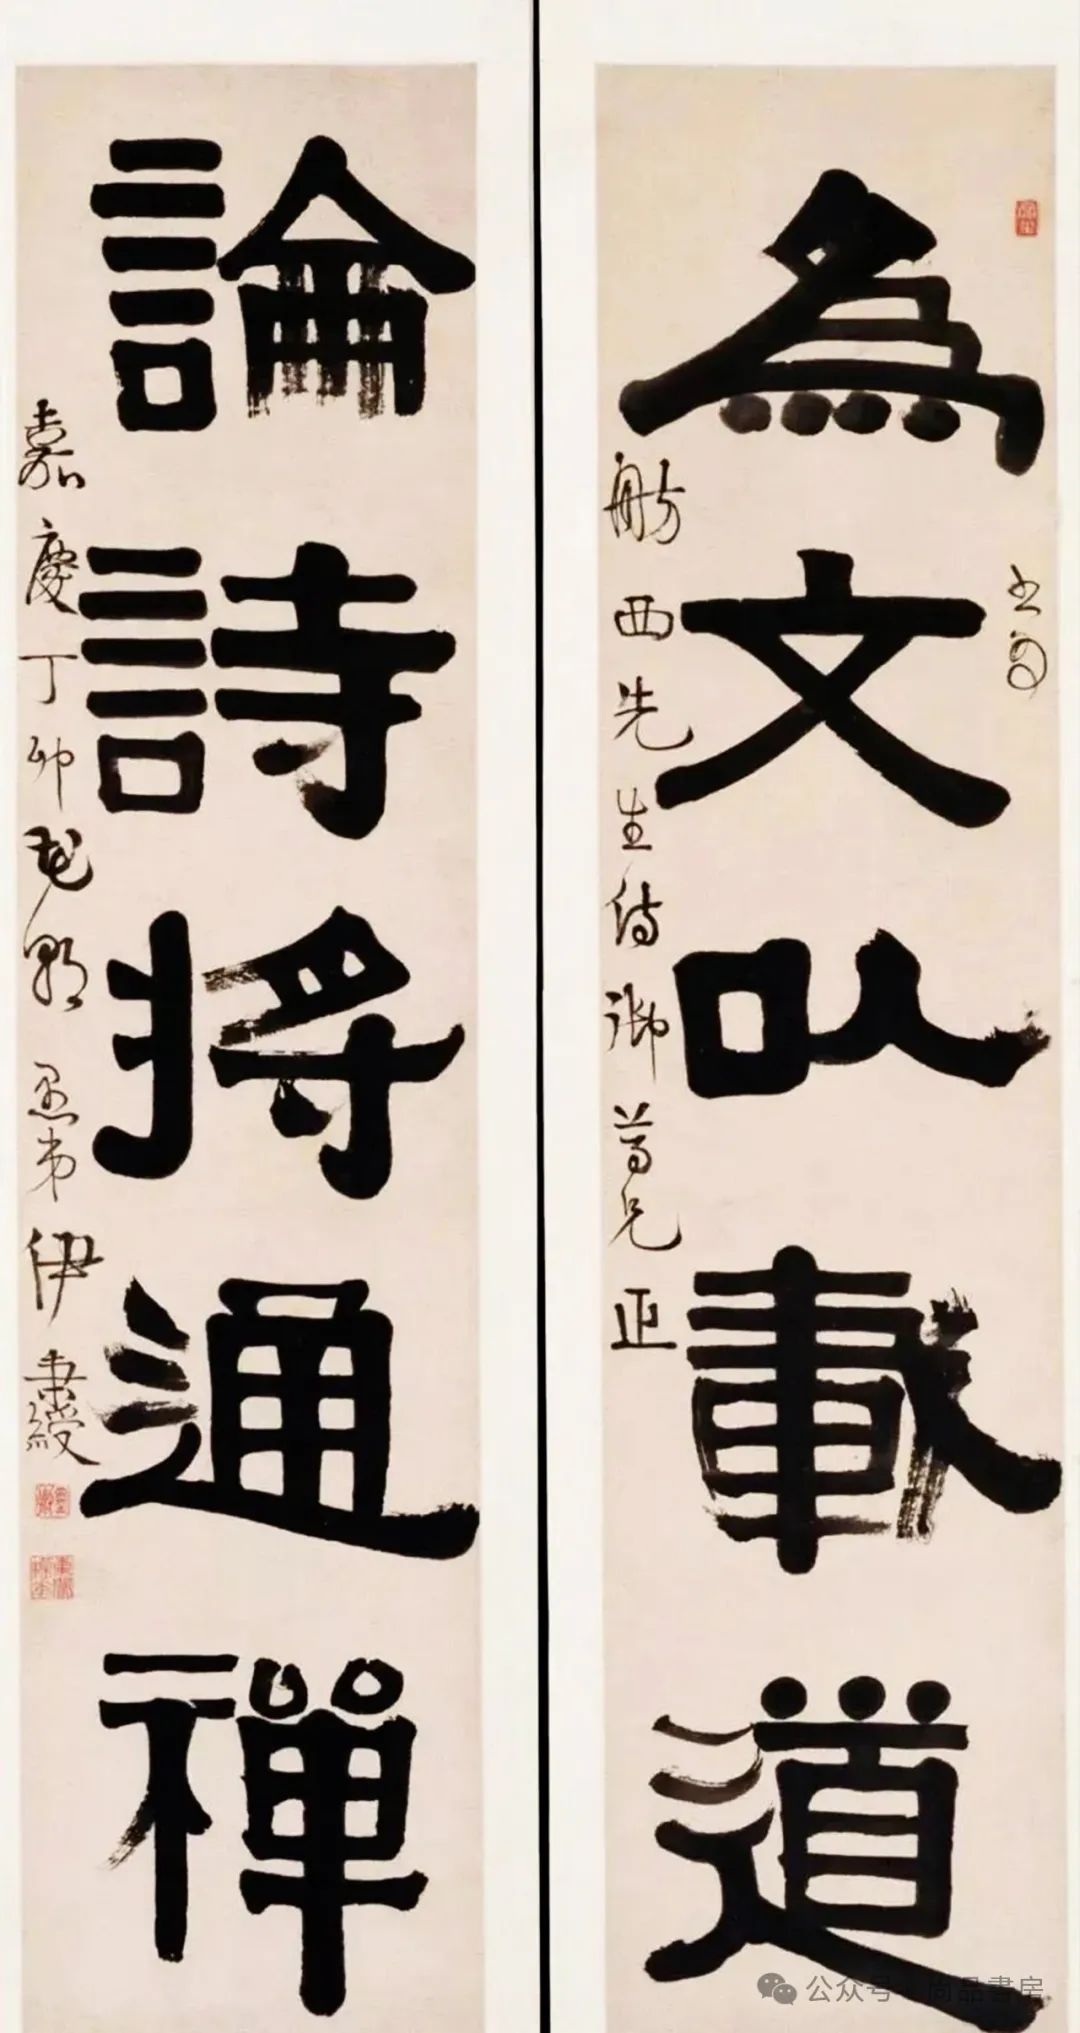 為文以載道
舫西先生侍御尊兄正
論詩將通禪
嘉慶丁卯花朝 愚弟 伊秉綬
公众号 尚品書房